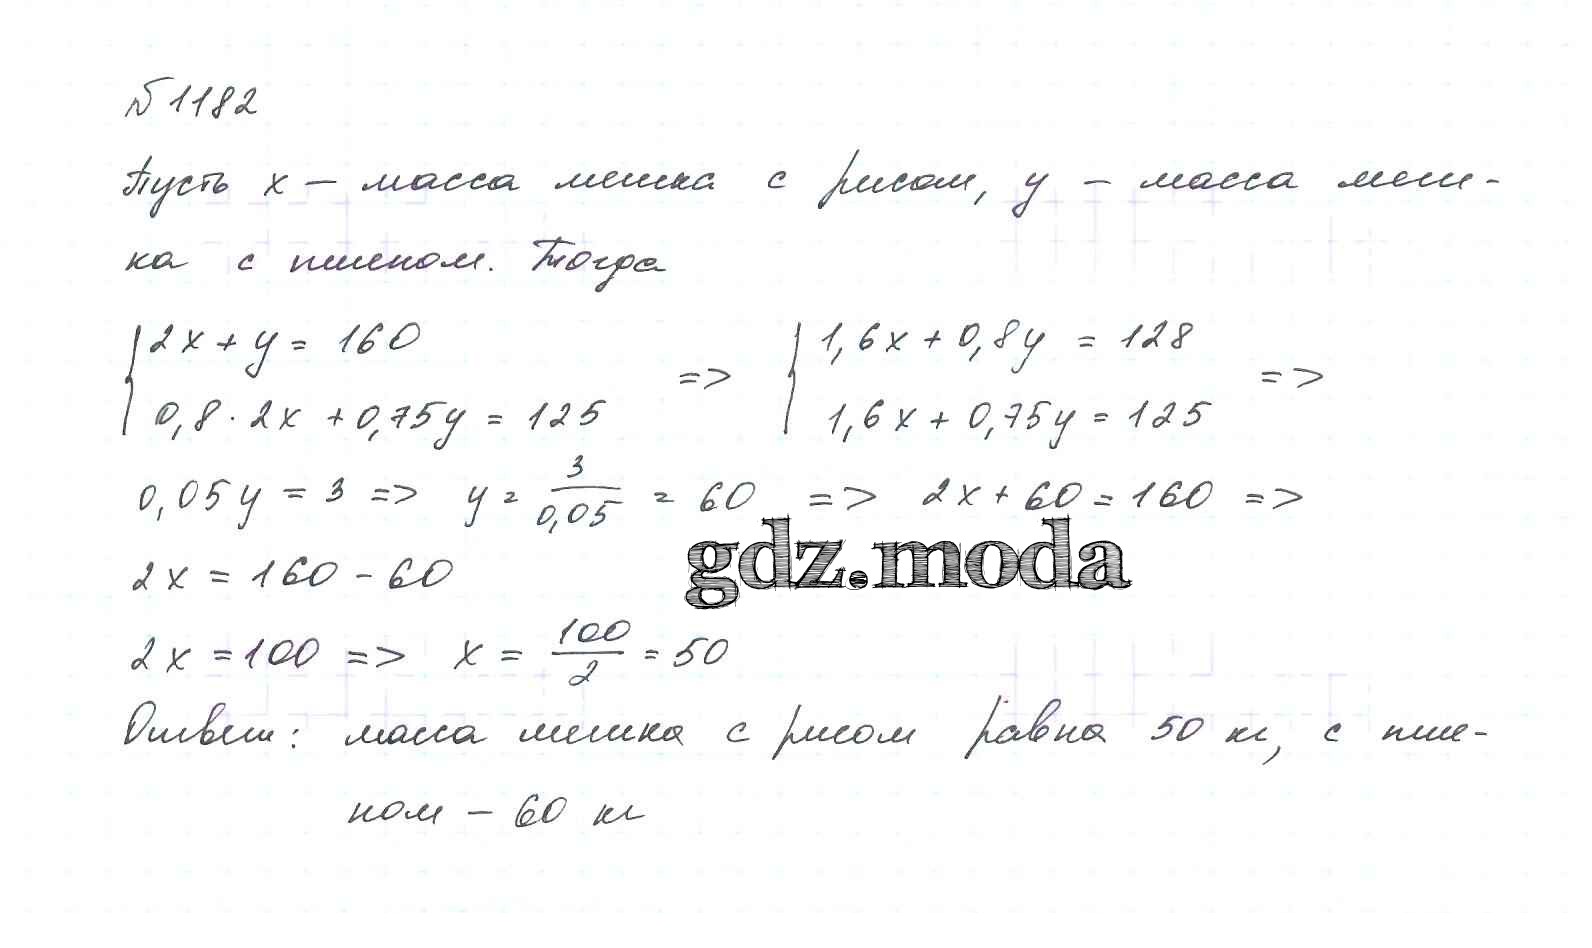 №1182
Пусть x – масса мешка с рисом, y – масса меш-
ка с пшеном. Тогда
2x + y = 160 => 1,6x + 0,8y = 128 =>
0,8 · 2x + 0,75y = 125 1,6x + 0,75y = 125
0,05y = 3 => y = 3/0,05 = 60 => 2x + 60 = 160 =>
gdz.moda
2x = 160 - 60
2x = 100 => x = 100/2 = 50
Ответ: масса мешка с рисом равна 50 кг, с пше-
ном – 60 кг